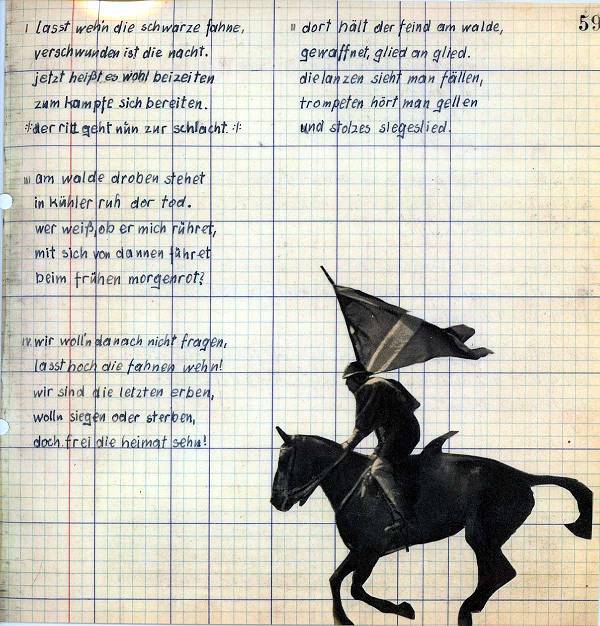 59
I lasst weh'n die schwarze fahne,
verschwunden ist die nacht.
jetzt heißt es wohl beizeiten
zum kampfe sich bereiten.
:der ritt geht nun zur schlacht.:
II dort hält der feind am walde,
gewaffnet, glied an glied.
die lanzen sieht man fällen,
trompeten hört man gellen
und stolzes siegeslied.
III am walde droben stehet
in kühler ruh der tod.
wer weiß, ob er mich rühret,
mit sich von dannen führet
beim frühen morgenrot?
IV. wir woll'n danach nicht fragen,
lasst hoch die fahnen wehn!
wir sind die letzten erben,
wolln siegen oder sterben,
doch frei die heimat sehn!